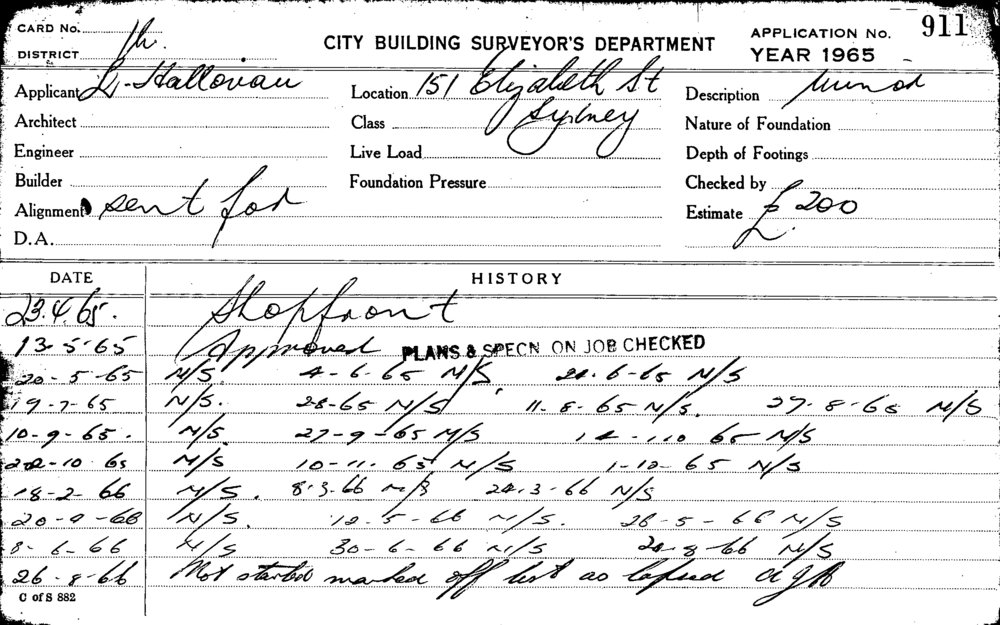 CARD No.
CITY BUILDING SURVEYOR'S DEPARTMENT
APPLICATION No. 911
DISTRICT
YEAR 1965
Applicant L. Hallovan
Location 151 Elizabeth St
Sydney
Description
Architect
Class
Nature of Foundation
Engineer
Live Load
Depth of Footings
Builder
Foundation Pressure
Checked by
Alignment sent for
Estimate £ 200
D.A.
DATE HISTORY
23.4.65. Shopfront
13-5-65 Approved PLANS & SPECN ON JOB CHECKED
20-5-65 N/S. 4-6-65 N/S, 6-65 N/S
19-7-65 N/S. 28-65 N/S 11-8-65 N/S. 27-8-65 N/S
10-9-65. N/S. 27-9-65 N/S 65 N/S
10 65 N/S 10-11-65 N/S 1-12-65 N/S
18-2-66 N/S. 8.3.66 N/S 24-3-66 N/S
N/S. 12-5-66 N/S. 26-5-66 N/S
8-6-66 N/S 30-6-66 N/S 8-66 N/S
26-8-66 Not started marked off list as lapsed
C of S 882